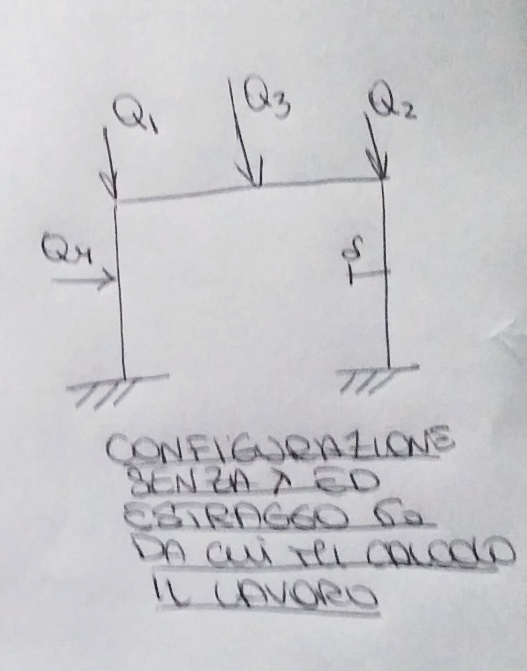 Q1
Q3
Q2
Q4
δ
CONFIGURAZIONE
SENZA λ ED
ESTRAGGO
DA CUI MI CALCOLO
IL LAVORO